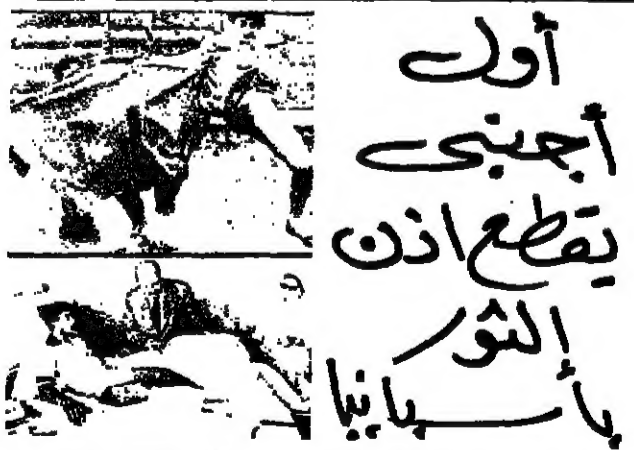 أول
أجنبى
يقطع اذن
الثور
بأسبانيا